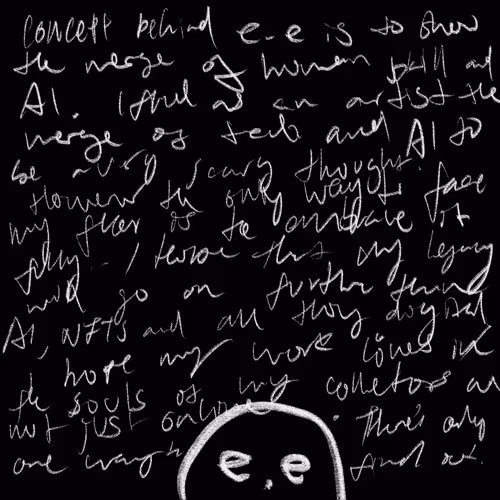 Concept behind e-e is to show
the merge of human skill and
AI. I find as an artist the
merge of tech and AI to
be a very scary thought.
However the only way to face
my fear is to embrace it
fully. I know that my legacy
will go on further than
AI, NFTs and all things digital
I hope my work lives in
the souls of my collectors and
not just online. There's only
one way to find out.
e.e